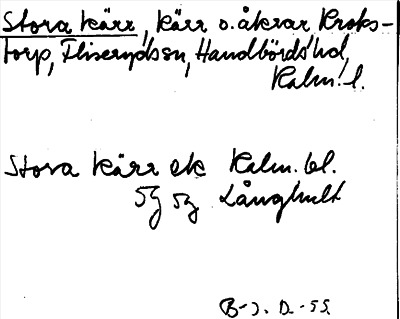 Stora kärr, kärr o. åkrar Kroks-
torp, Fliseryds sn, Handbörds hd,
Kalm. l.
Stora kärr ek Kalm. bl.
5g 5g Långhult
B-J. D.-55.